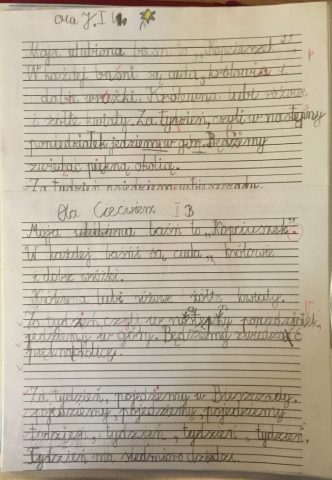 Ola J. I
Moja ulubiona baśń to „Kopciuszek".
W każdej baśni są cuda, królowie i
dobre wróżki. Królowna lubi różowe
i żółte kwiaty. Za tydzień, czyli w następny
poniedziałek jedziemy w góry. Będziemy
zwiedzać piękną okolicę.
Za tydzień pojedziemy
Ola Ciećwierz I B
Moja ulubiona baśń to „Kopciuszek".
W każdej baśni są cuda, królowie
i dobre wróżki.
Królewna lubi różowe żółte kwiaty.
Za tydzień, czyli w następny poniedziałek,
jedziemy w góry. Będziemy zwiedzać
Za tydzień, pojedziemy w Bieszczady.
pojedziemy, pojedziemy pojedziemy
tydzień, tydzień, tydzień, tydzień.
Tydzień ma siedmiu